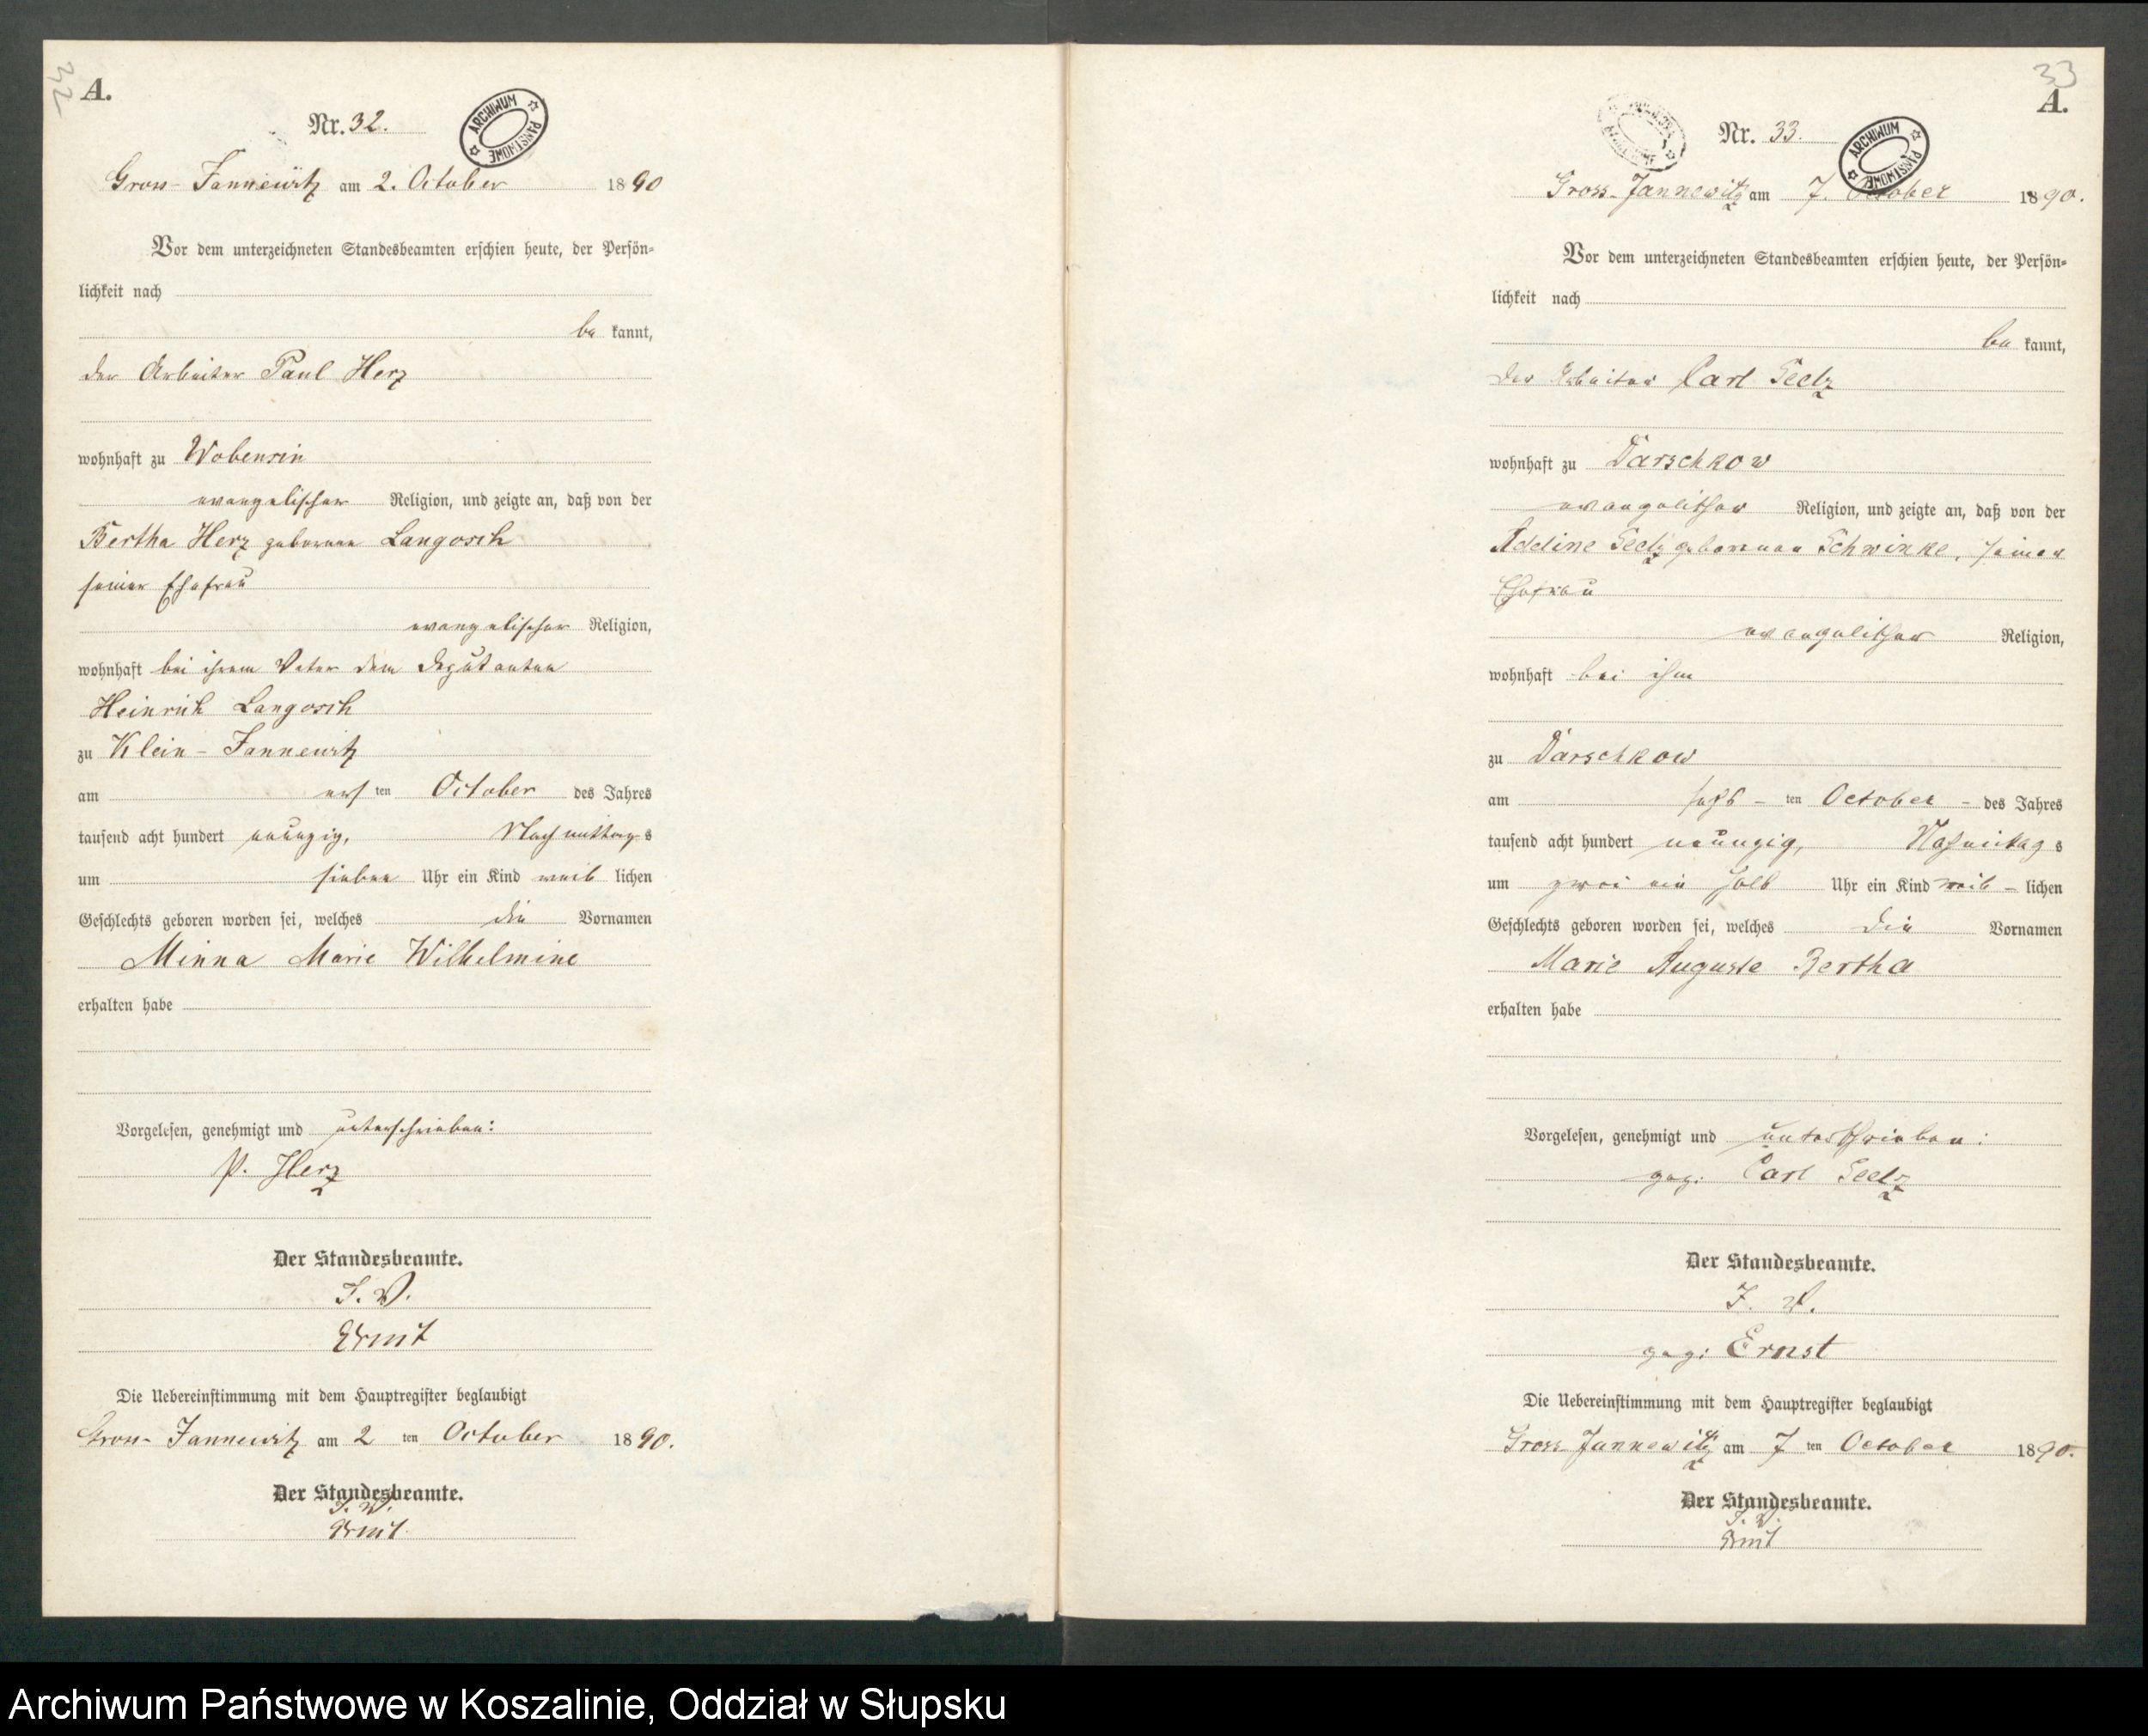 32
A.
Nr. 32.
ARCHIWUM PAŃSTWOWE
Gross-Jannewitz am 2. October 1890
Vor dem unterzeichneten Standesbeamten erschien heute, der Persön-
lichkeit nach
be kannt,
der Arbeiter Paul Herz
wohnhaft zu Wobensin
evangelischer Religion, und zeigte an, daß von der
Bertha Herz geborene Langosch
seiner Ehefrau
evangelischer Religion,
wohnhaft bei ihrem Vater dem Deputanten
Heinrich Langosch
zu Klein-Jannewitz
am ers ten October des Jahres
tausend acht hundert neunzig, Nachmittag s
um sieben Uhr ein Kind weib lichen
Geschlechts geboren worden sei, welches die Vornamen
Minna Marie Wilhelmine
erhalten habe
Vorgelesen, genehmigt und unterschrieben:
P. Herz
Der Standesbeamte.
J. V.
Ernst
Die Uebereinstimmung mit dem Hauptregister beglaubigt
Gross-Jannewitz am 2 ten October 1890.
Der Standesbeamte.
J. V.
Ernst
33
A.
Nr. 33.
ARCHIWUM PAŃSTWOWE
Gross-Jannewitz am 7. October 1890.
Vor dem unterzeichneten Standesbeamten erschien heute, der Persön-
lichkeit nach
be kannt,
der Arbeiter Carl Seelz
wohnhaft zu Darschkow
evangelischer Religion, und zeigte an, daß von der
Adeline Seelz geborenen Schwinke, seiner
Ehefrau
evangelischer Religion,
wohnhaft bei ihm
zu Darschkow
am sechs - ten October - des Jahres
tausend acht hundert neunzig, Nachmittag s
um zwei ein halb Uhr ein Kind weib - lichen
Geschlechts geboren worden sei, welches die Vornamen
Marie Auguste Bertha
erhalten habe
Vorgelesen, genehmigt und unterschrieben:
gez. Carl Seelz
Der Standesbeamte.
J. V.
gez: Ernst
Die Uebereinstimmung mit dem Hauptregister beglaubigt
Gross Jannewitz am 7 ten October 1890.
Der Standesbeamte.
J. V.
Ernst
Archiwum Państwowe w Koszalinie, Oddział w Słupsku